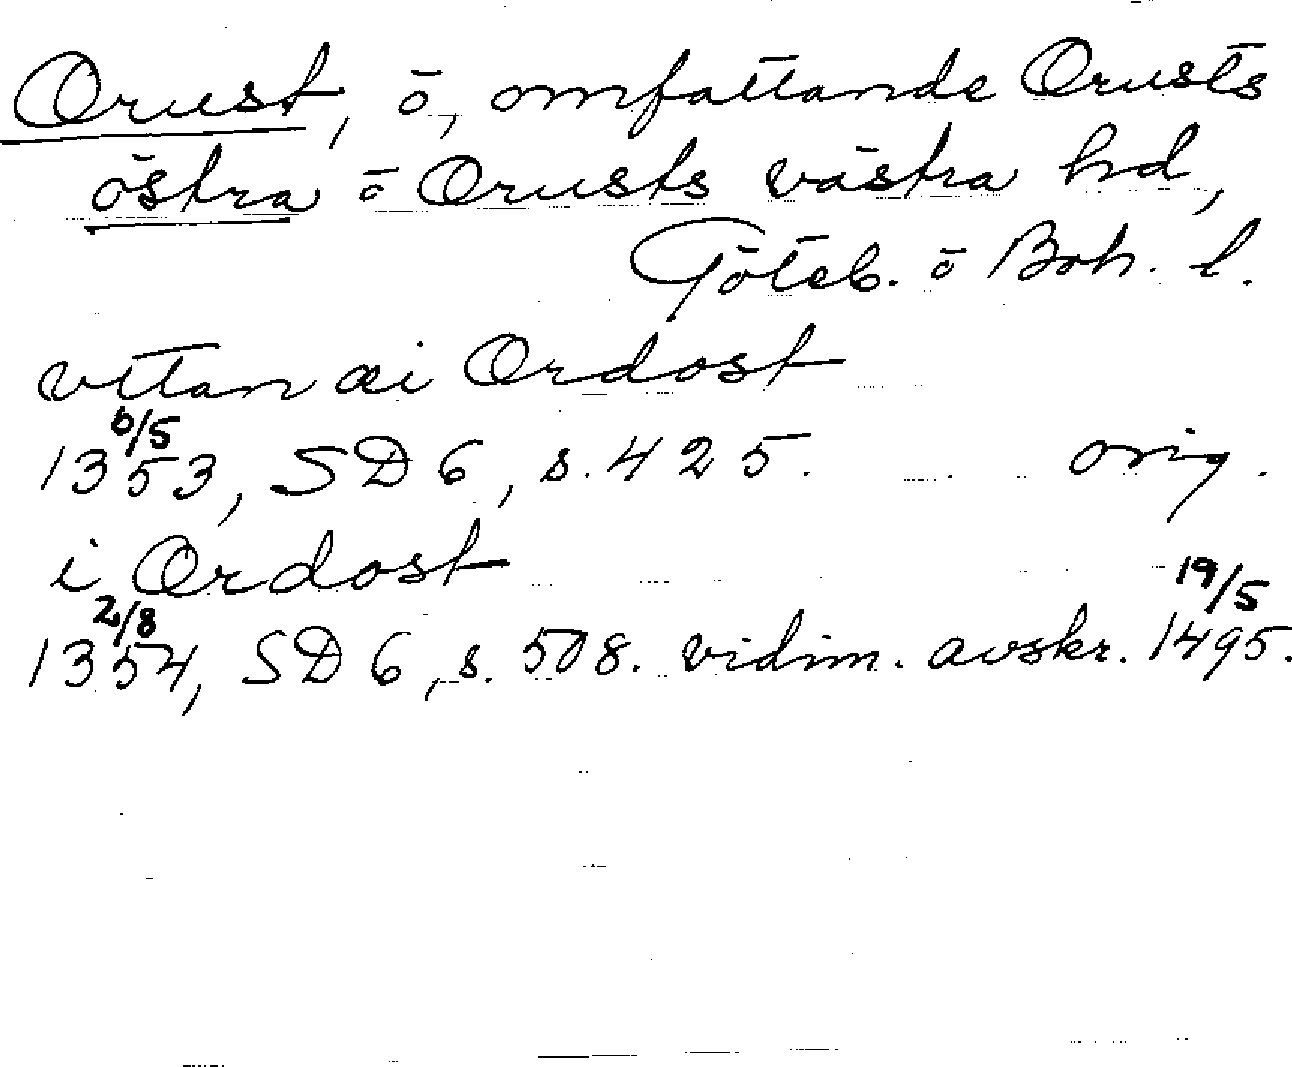 Orust, ö, omfattande Orusts
östra o Orusts västra hd,
Göteb. o Boh. l.
vttan æi Ordost
1353 6/5, SD 6, s. 425. orig.
i Ordost
1354 2/8, SD 6, s. 508. vidim. avskr. 1495 19/5.